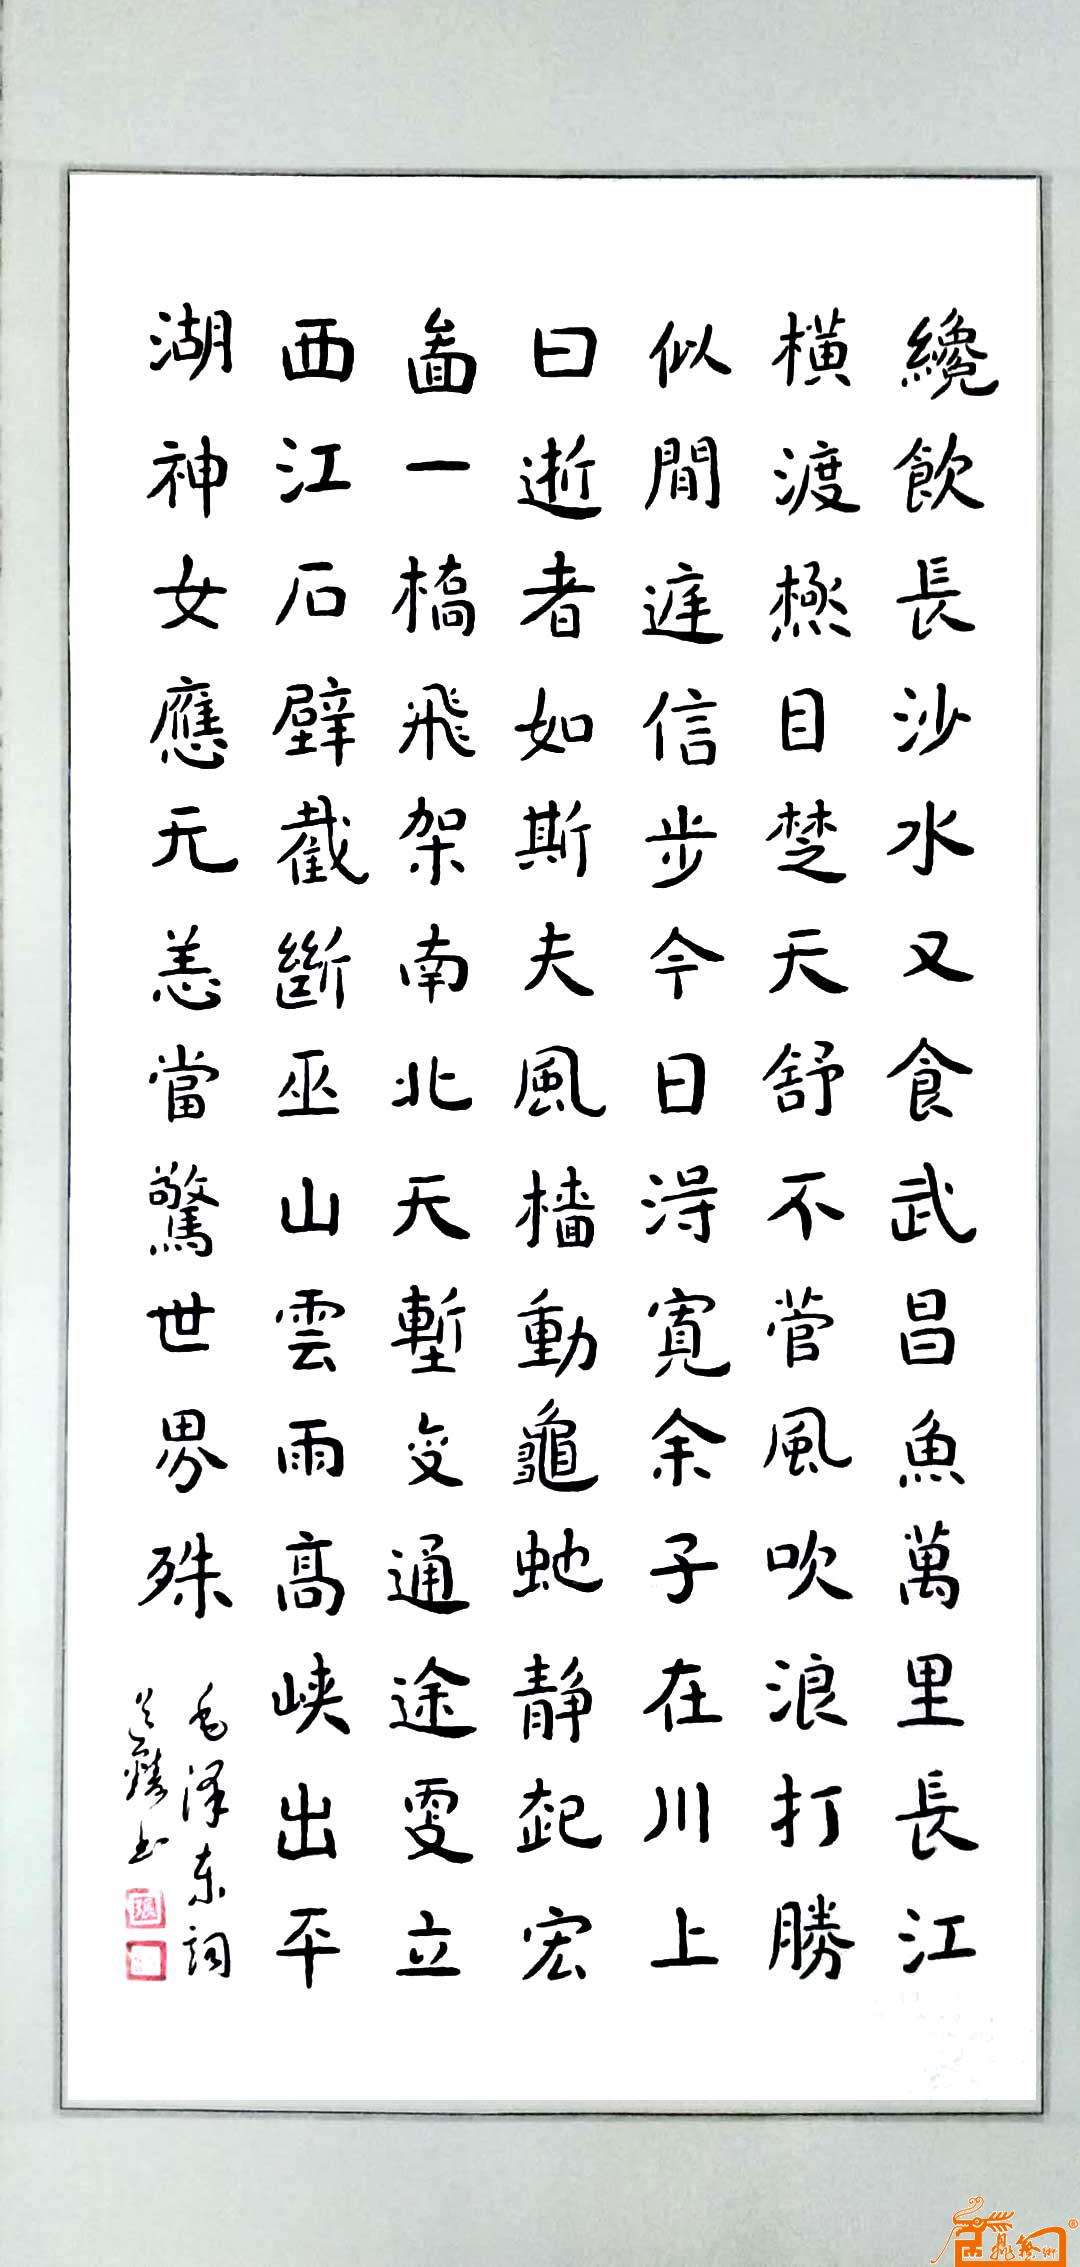 纔飲長沙水又食武昌魚萬里長江
橫渡極目楚天舒不管風吹浪打勝
似閒庭信步今日得寬余子在川上
曰逝者如斯夫風檣動龜蛇靜起宏
啚一橋飛架南北天塹变通途变立
西江石壁截斷巫山雲雨高峡出平
湖神女應无恙當驚世界殊
毛泽东詞
书
張